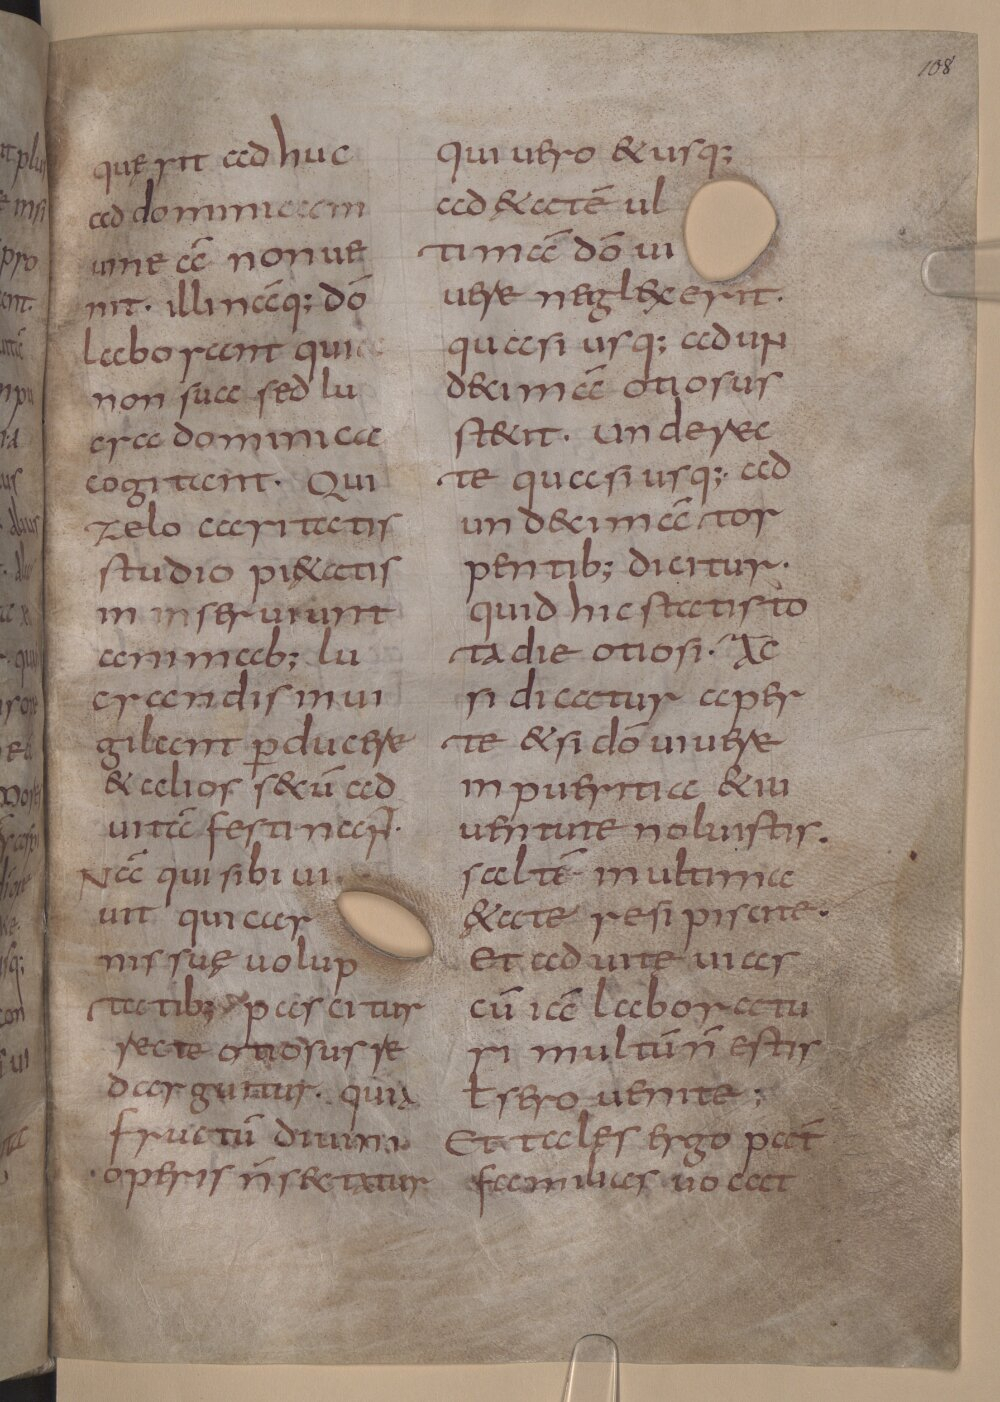 108
quęrit adhuc
ad dominicam
uineā non ue
nit. illināq; dō
laborant quia
non sua sed lu
cra dominica
cogitant. Qui
zelo caritatis
studio pi&atis
in inseruiunt
animab; lu
crandis inui
gilant ꝑducere
& alios secū ad
uitā festinanт.
Nā qui sibi ui
uit qui car
nis suę uolup
tatib; pascitur
recte otiosus re
darguitur. quia
fructū diuini
operis n̄ sectatur
qui uero & usq;
ad &atē ul
timā dō ui
uere neglexerit.
quasi usq; ad un
decimā otiosus
st&it. Unde rec
te quasi usq; ad
undecimā tor
pentib; dicitur.
quid hic statis to
ta die otiosi. Ac
si dicatur aper
te &si dō uiuere
in pueritia & iu
uentute noluistis.
saltē in ultima
&ate resipiscite.
Et ad uite uias
cū iā laboratu
ri multū n̄ estis
ł sero uenite;
Et tales ergo pat̄
familias uocat